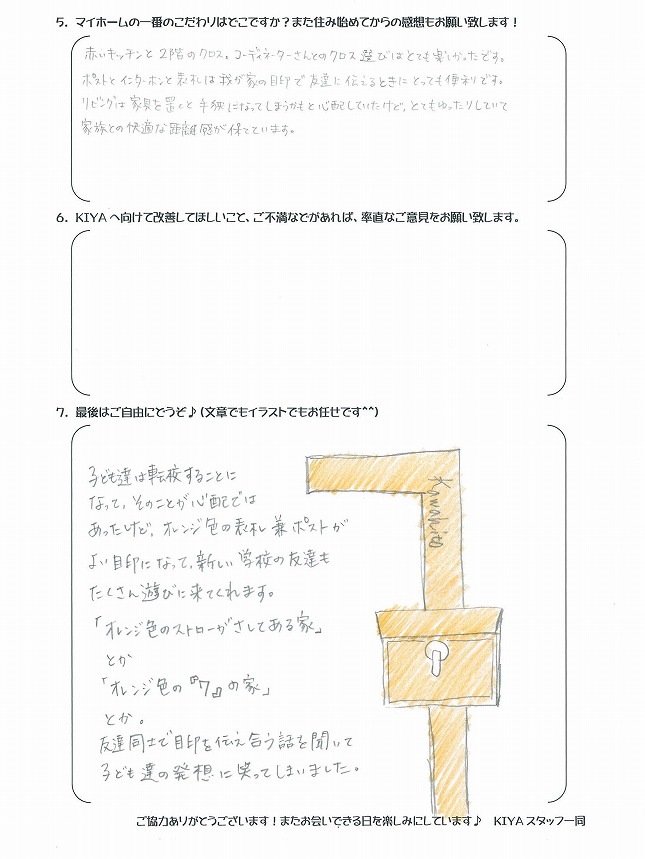 5. マイホームの一番のこだわりはどこですか？また住み始めてからの感想もお願い致します！
赤いキッチンと2階のクロス。コーディネーターさんとのクロス選びはとても楽しかったです。
ポストとインターホンと表札は我が家の目印で友達に伝えるときにとっても便利です。
リビングは家具を置くと手狭になってしまうかもと心配していたけど、とてもゆったりしていて
家族との快適な距離感が保てています。
6. KIYAへ向けて改善してほしいこと、ご不満などがあれば、率直なご意見をお願い致します。
7. 最後はご自由にどうぞ♪(文章でもイラストでもお任せです^^)
子ども達は転校することに
なって、そのことが心配では
あったけど、オレンジ色の表札兼ポストが
よい目印になって、新しい学校の友達も
たくさん遊びに来てくれます。
「オレンジ色のストローがさしてある家」
とか
「オレンジ色の『7』の家」
とか。
友達同士で目印を伝え合う話を聞いて
子ども達の発想に笑ってしまいました。
Kawakita
ご協力ありがとうございます！またお会いできる日を楽しみにしています♪ KIYAスタッフ一同